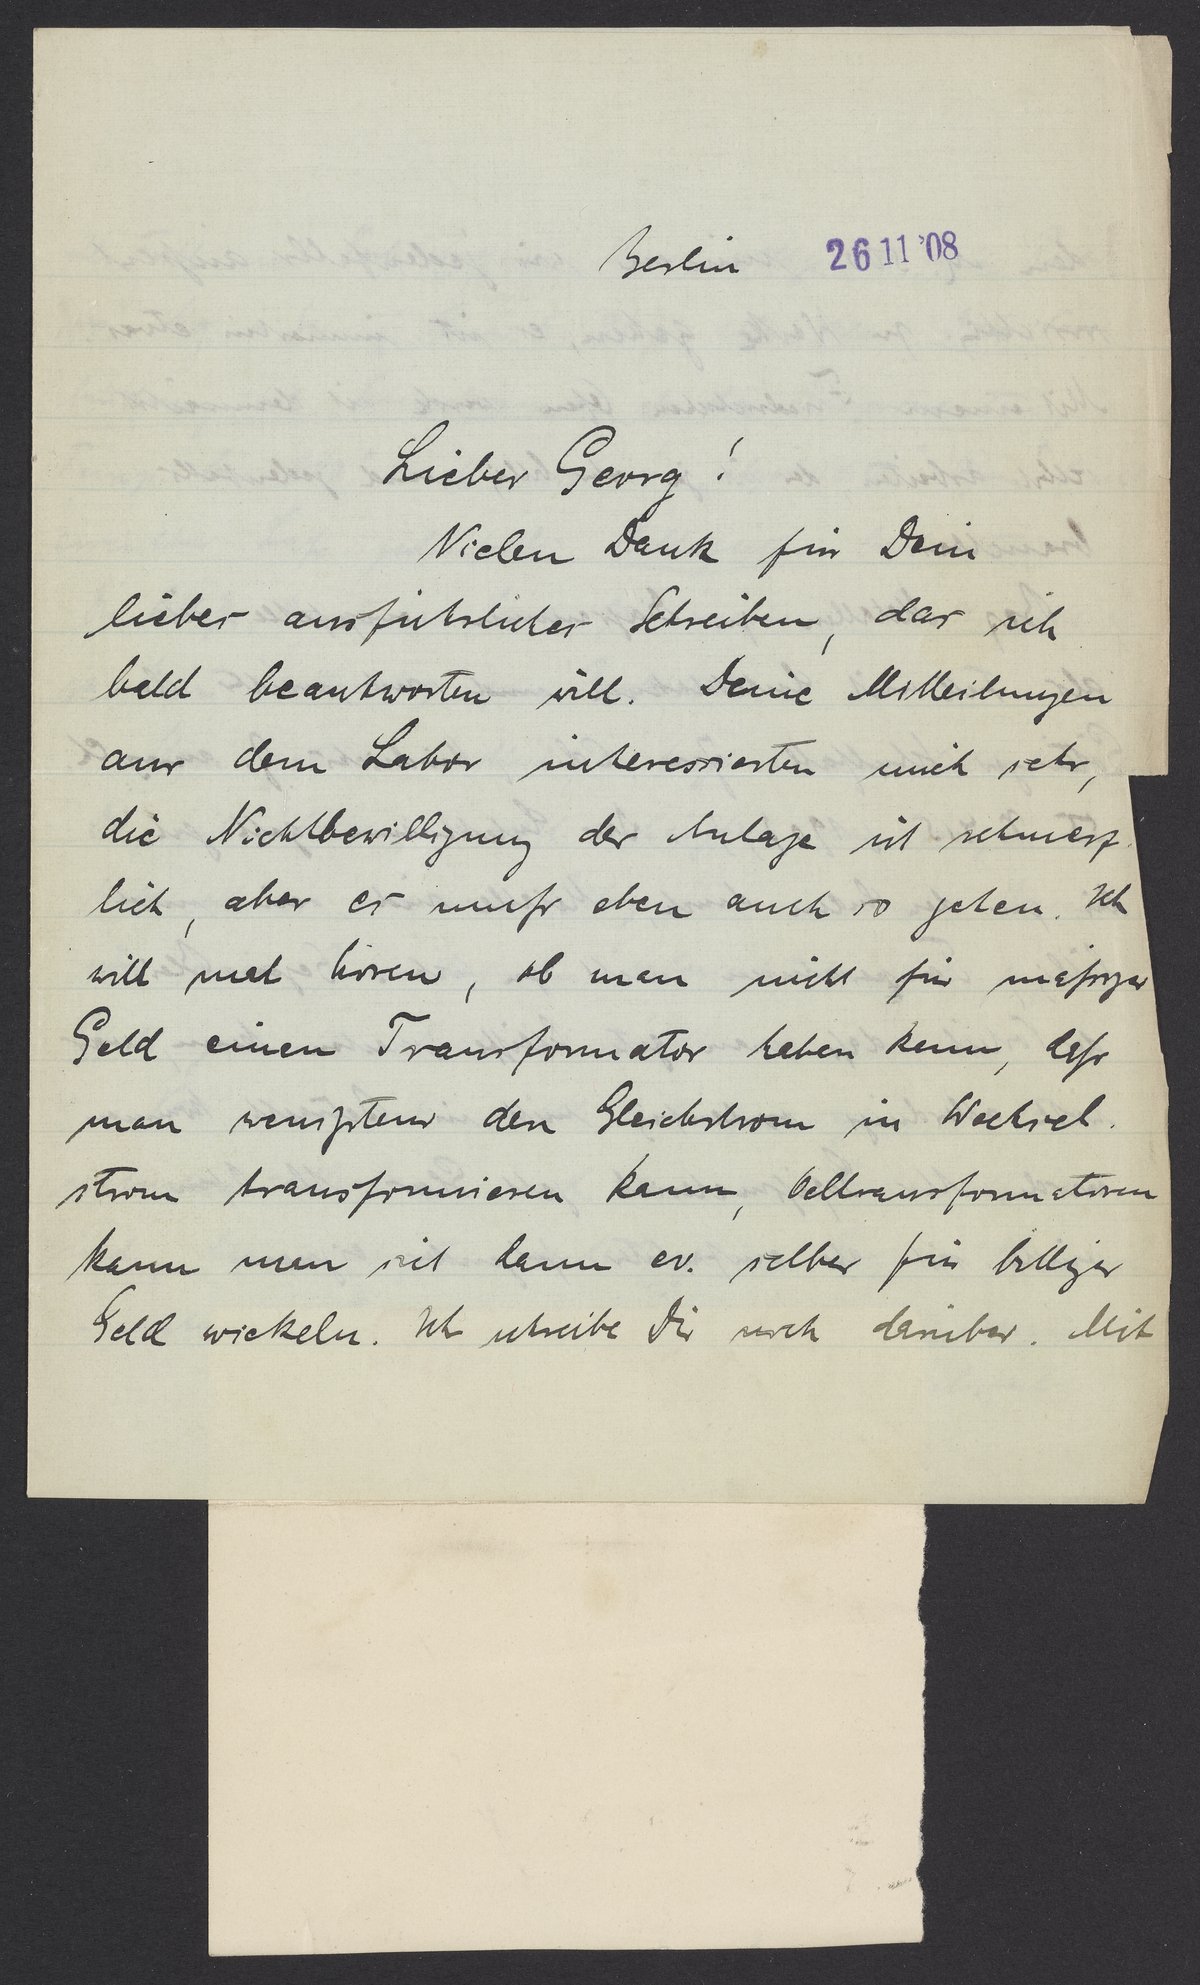 Berlin 26 11 '08
Lieber Georg!
Vielen Dank für Dein
liebes ausführliches Schreiben, das ich
bald beantworten will. Deine Mitteilungen
aus dem Labor interessierten mich sehr,
die Nichtbewilligung der Anlage ist schmerz-
lich, aber es muß eben auch so gehen. Ich
will mal hören, ob man nicht für mäßiges
Geld einen Transformator haben kann, daß
man wenigstens den Gleichstrom in Wechsel-
strom transformieren kann, Oeltransformatoren
kann man sich dann ev. selber für billiges
Geld wickeln. Ich schreibe Dir noch darüber. Mit